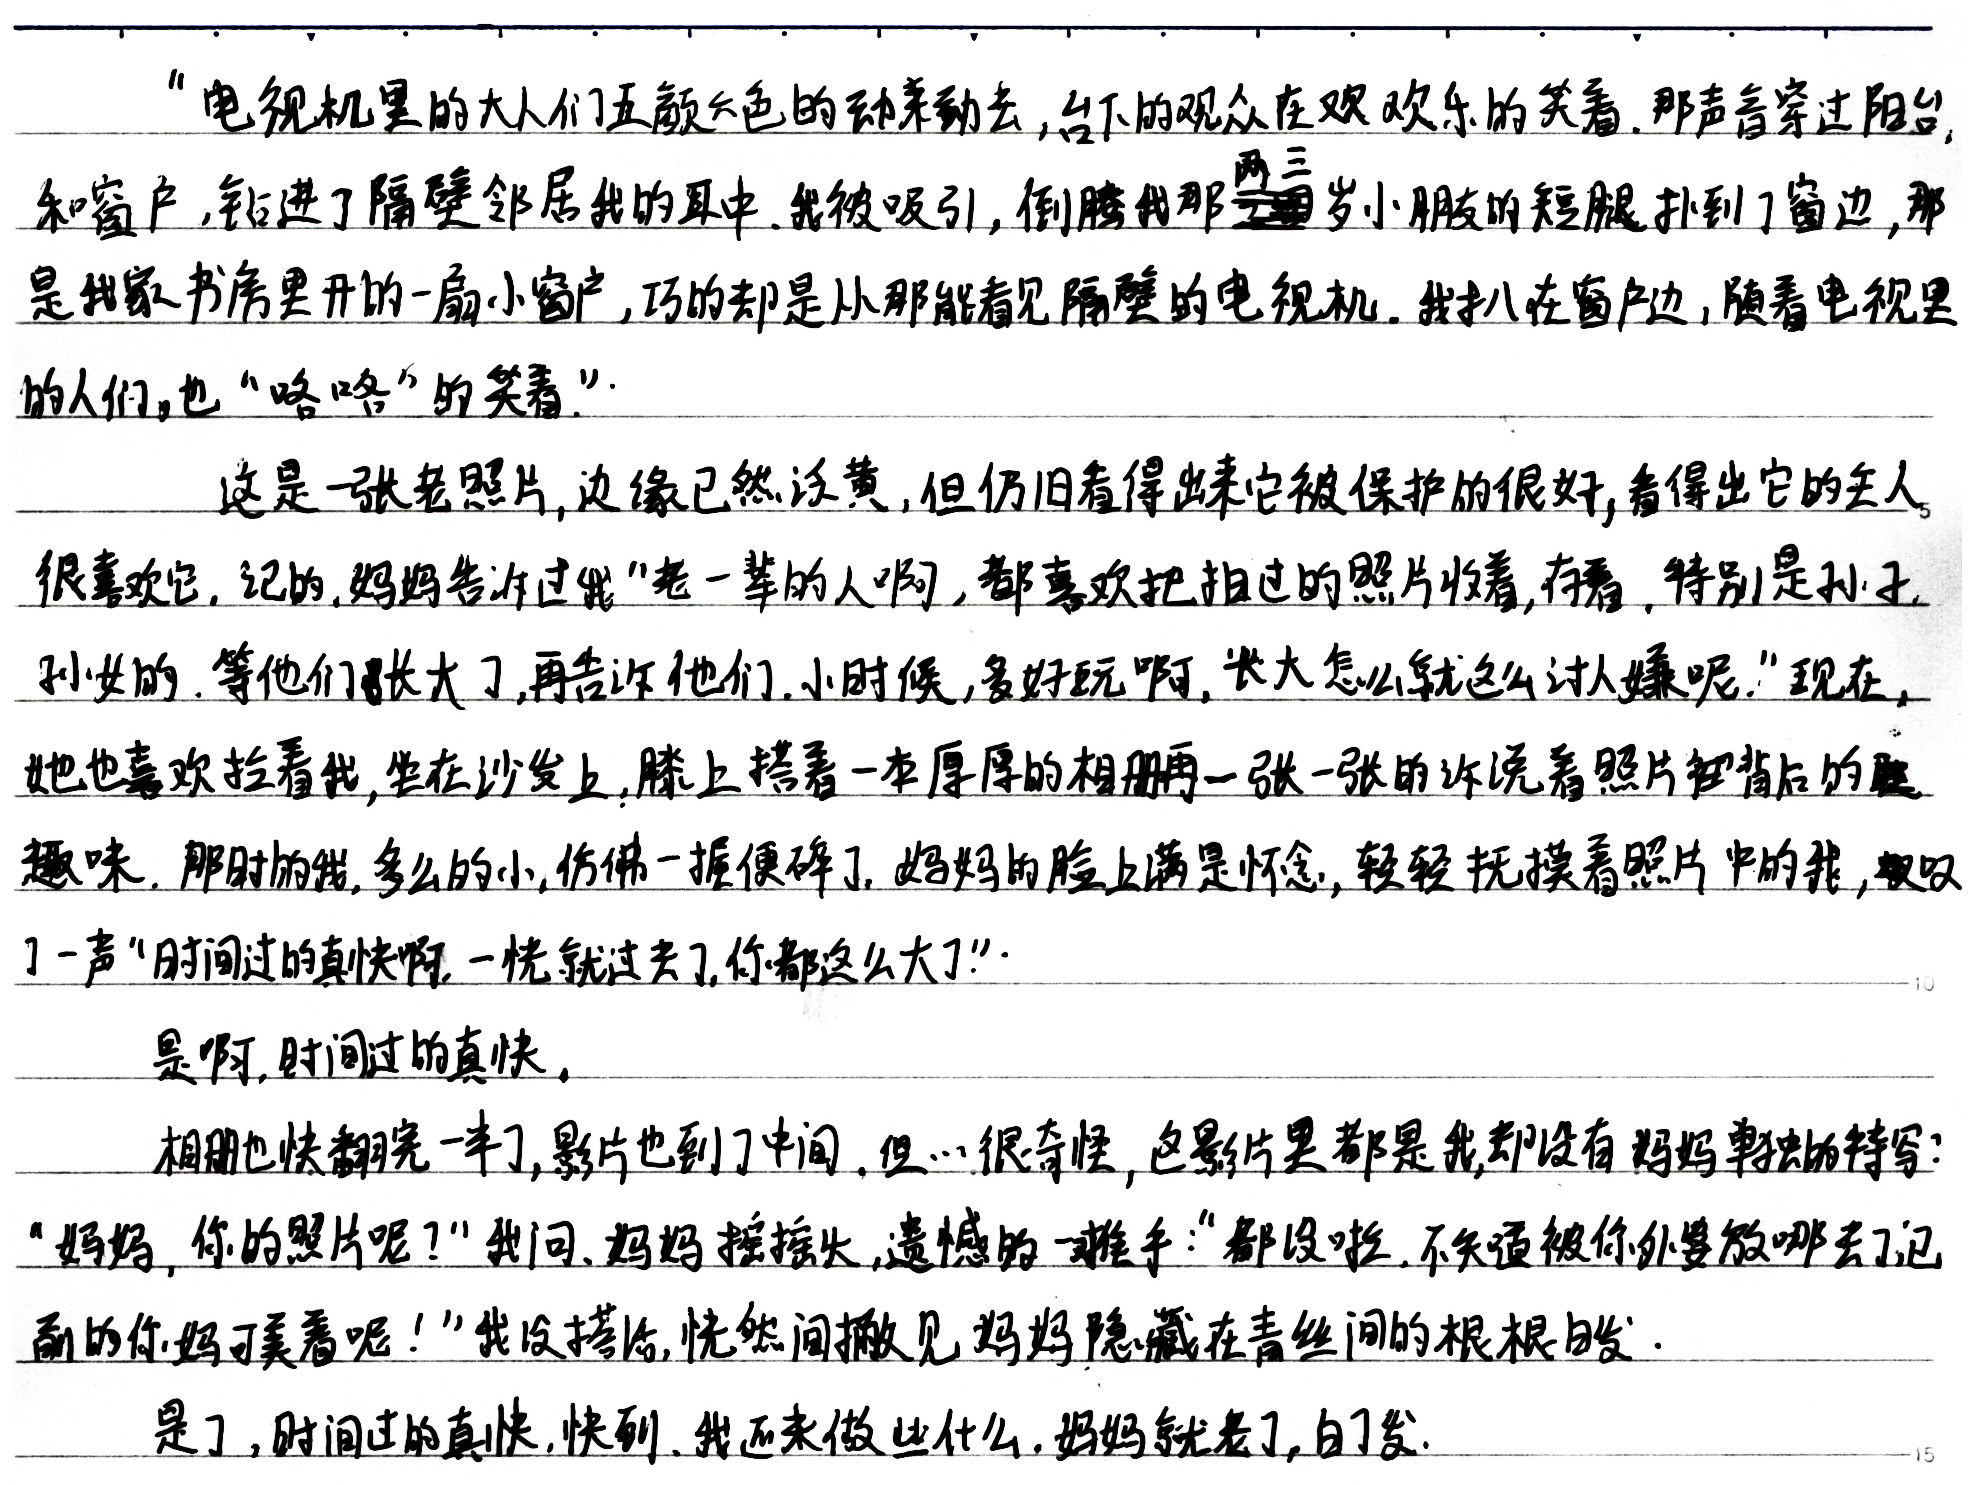 “电视机里的大人们五颜六色的动来动去，台下的观众在欢欢乐的笑着.那声音穿过阳台,
和窗户,钻进了隔壁邻居我的耳中.我被吸引,倒腾我那两三岁小朋友的短腿扑到了窗边,那
是我家书房里开的一扇小窗户,巧的却是从那能看见隔壁的电视机.我扒在窗户边,随着电视里
的人们,也“咯咯”的笑着.”.
这是一张老照片,边缘已然泛黄,但仍旧看得出来它被保护的很好,看得出它的主人
很喜欢它.记的.妈妈告诉过我“老一辈的人啊,都喜欢把拍过的照片收着,存着.特别是孙子.
孙女的.等他们长大了,再告诉他们.小时候,多好玩啊.长大怎么就这么讨人嫌呢.”现在,
她也喜欢拉着我,坐在沙发上,膝上搭着一本厚厚的相册再一张一张的诉说着照片背后的
趣味.那时的我.多么的小,仿佛一握便碎了.妈妈的脸上满是怀念,轻轻抚摸着照片中的我,叹
了一声“时间过的真快啊.一恍就过去了,你都这么大了!”.
是啊,时间过的真快.
相册也快翻完一半了,影片也到了中间.但…很奇怪,这影片里都是我,却没有妈妈单独的特写:
“妈妈,你的照片呢?”我问.妈妈摇摇头,遗憾的一摊手:“都没啦.不知道被你外婆放哪去了,记
的你妈可美着呢!”我没搭话,恍然间撇见妈妈隐藏在青丝间的根根白发.
是了,时间过的真快.快到.我还未做些什么.妈妈就老了,白了发.